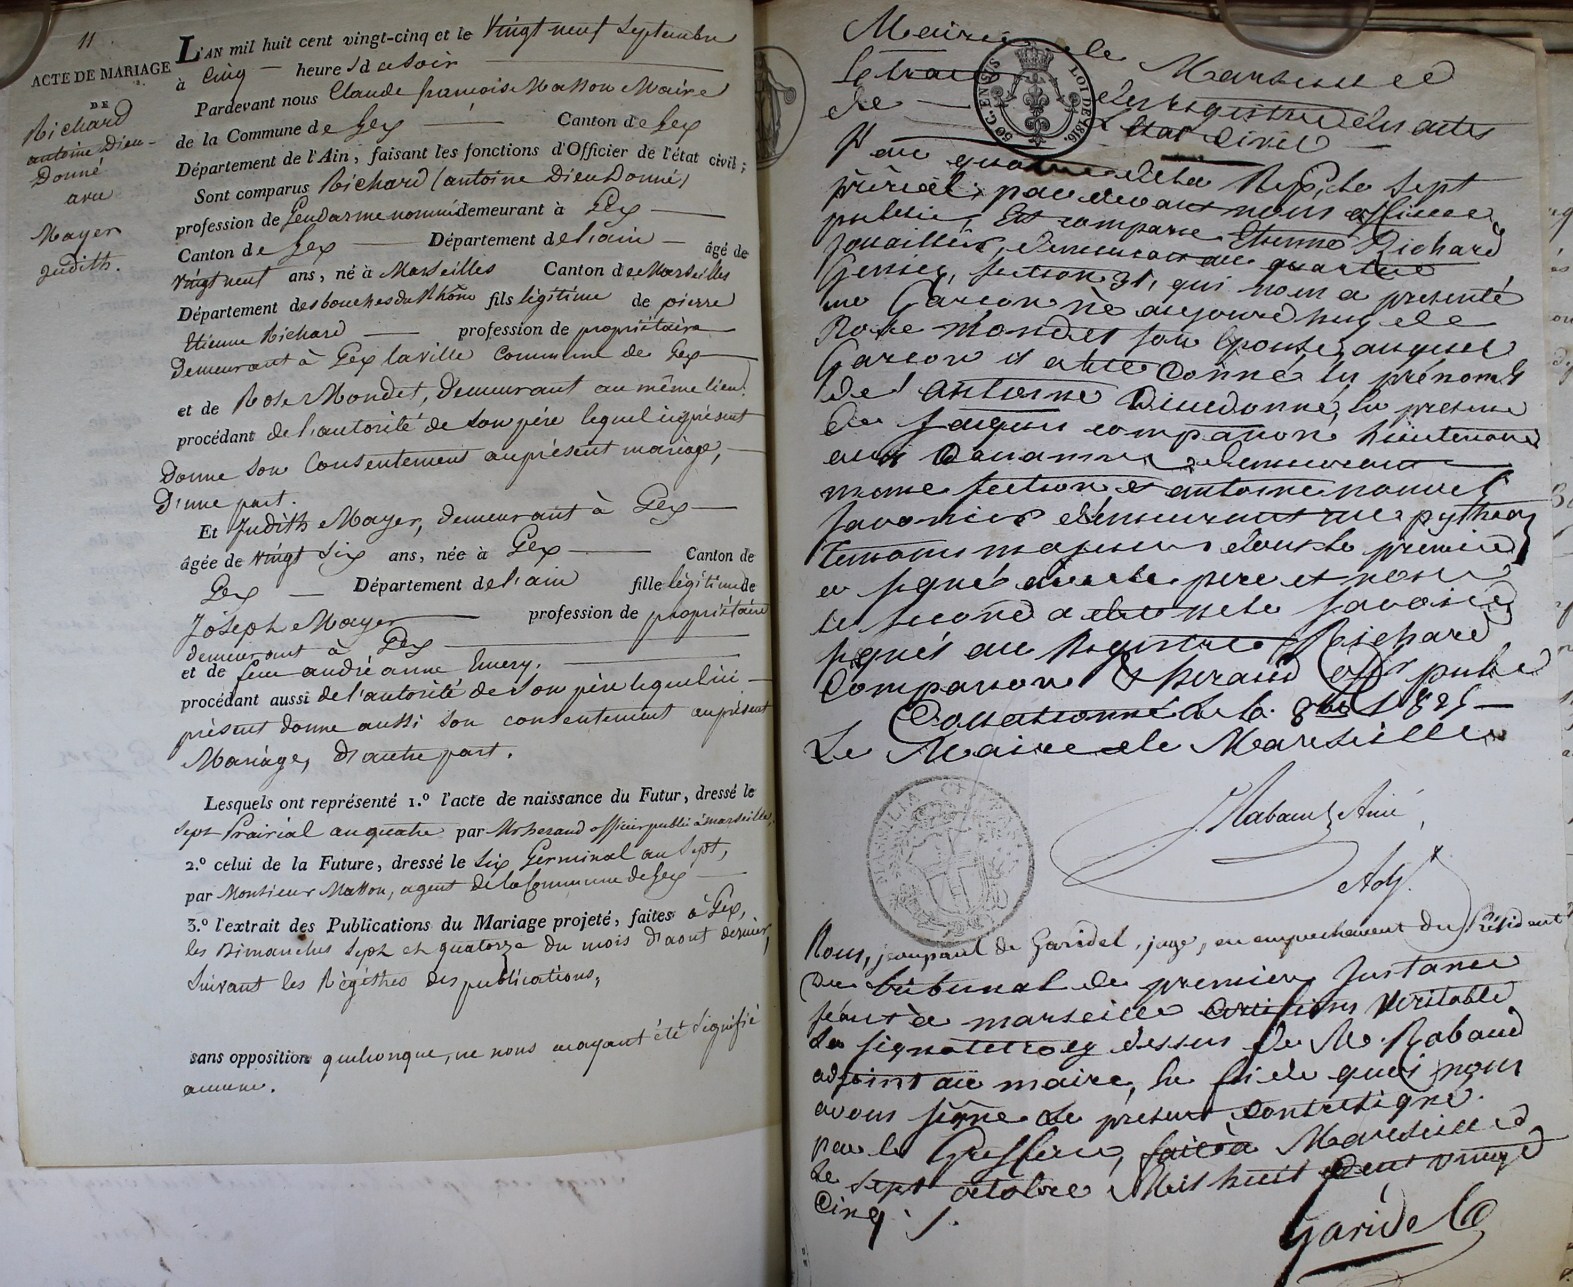 11
ACTE DE MARIAGE
DE
Richard
antoine Dieu-
Donné
avec
Mayer
Judith.
L'AN mil huit cent vingt-cinq et le Vingt neuf Septembre
à Cinq heures du Soir
Pardevant nous Claude françois Matton Maire
de la Commune de Gex Canton de Gex
Département de l'Ain, faisant les fonctions d'Officier de l'état civil;
Sont comparus Richard (antoine Dieu Donné)
profession de Gendarme nommé demeurant à Gex
Canton de Gex Département de l'ain âgé de
Vingt neuf ans, né à Marseilles Canton de Marseilles
Département des bouches du Rhône fils légitime de pierre
Etienne Richard profession de propriétaire
Demeurant à Gex la ville commune de Gex
et de Rose Mondet, Demeurant au même lieu.
procédant de l'autorité de son père lequel ici présent
Donne son Consentement au présent mariage,
D'une part.
Et Judith Mayer, demeurant à Gex
âgée de vingt Six ans, née à Gex Canton de
Gex Département de l'ain fille légitime de
Joseph Mayer profession de propriétaire
demeurant à Gex
et de feue andré anne Emery.
procédant aussi de l'autorité de son père lequel ici
présent donne aussi son consentement au présent
Mariage, d'autre part.
Lesquels ont représenté 1.° l'acte de naissance du Futur, dressé le
Sept Prairial an quatre par Mr heraud officier public à marseille,
2.° celui de la Future, dressé le Six Germinal an Sept,
par Monsieur Matton, agent de la Commune de Gex
3.° l'extrait des Publications du Mariage projeté, faites à Gex,
les Dimanches Sept et quatorze du mois d'aout dernier,
Suivant les Régithes des publications,
sans opposition quelconque, ne nous en ayant été Signifié
aucune.
Mairie de Marseille
Extrait des Registres des actes
de l'Etat Civil
50 C. EN SUS LOI DE 1816.
l'an quatre de la Rép. le sept
prérial, par devant nous officier
public, Est comparu Etienne Richard
Jouaillier, demeurant au quartier
section 31, qui nous a présenté
un Garçon né aujourd'huy de
Rose Mondet son Epouse, auquel
Garçon il a été Donné les prénoms
de antoine Dieudonné, en présence
de Jacques companon lieutenant
aux Douannes demeurant
meme section et antoine
savonier demeurant rue pythéas
temoins majeurs dont le premier
a signé avec le père et nous
le second a dit ne le savoir
signés au Registre Richard
Companon & heraud off. public
Collationné le 6. 8bre 1825
Le Maire de Marseille
Rabaud Ainé,
Adj.t
Nous, jean paul de Garidel, juge, en empechement du Président
Du tribunal de première Instance
séant à marseille certifions Véritable
La signature cy dessus de M. Rabaud
adjoint au maire, En foi de quoi nous
avons signé le présent contresigné
par le Greffier, fait à Marseille
Le sept octobre Mil huit cent vingt
Cinq.
Garidel